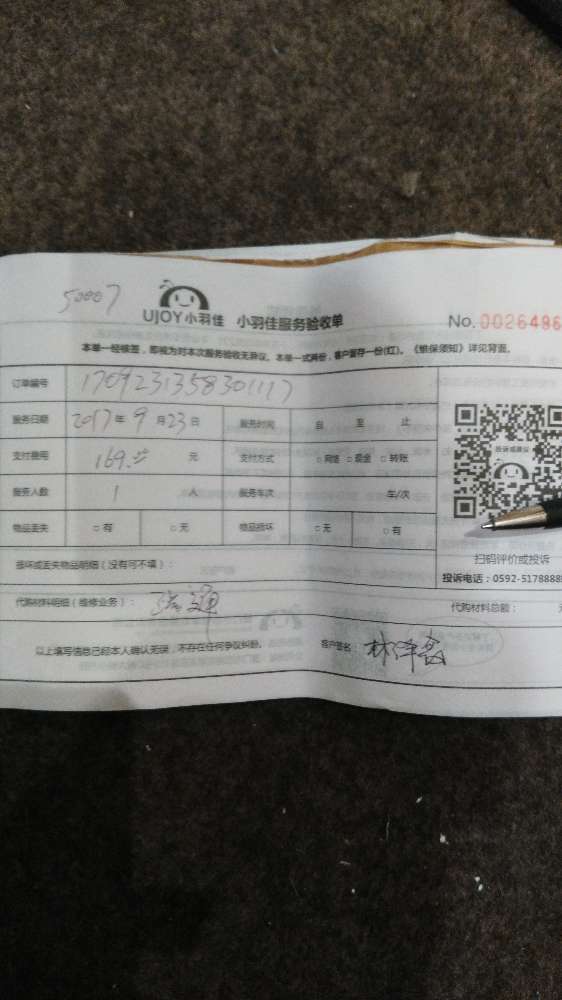 50007
UJOY小羽佳 小羽佳服务验收单 No. 0026486
本单一经核签，即视为对本次服务验收无异议。本单一式两份，客户留存一份(红)。《维保须知》详见背面。
订单编号 1709231358301117
服务日期 2017年 9 月 23 日 服务时间 自 至 止
支付费用 169. 元 支付方式 □网络 □现金 □转账
服务人数 1 人 服务车次 车/次
物品丢失 □有 □无 物品损坏 □无 □有
投诉或建议
扫码评价或投诉
投诉电话：0592-5178888
损坏或丢失物品明细（没有可不填）：
代购材料明细（维修业务）： 代购材料总额：
以上填写信息已经本人确认无误，不存在任何争议纠纷。 客户签名：